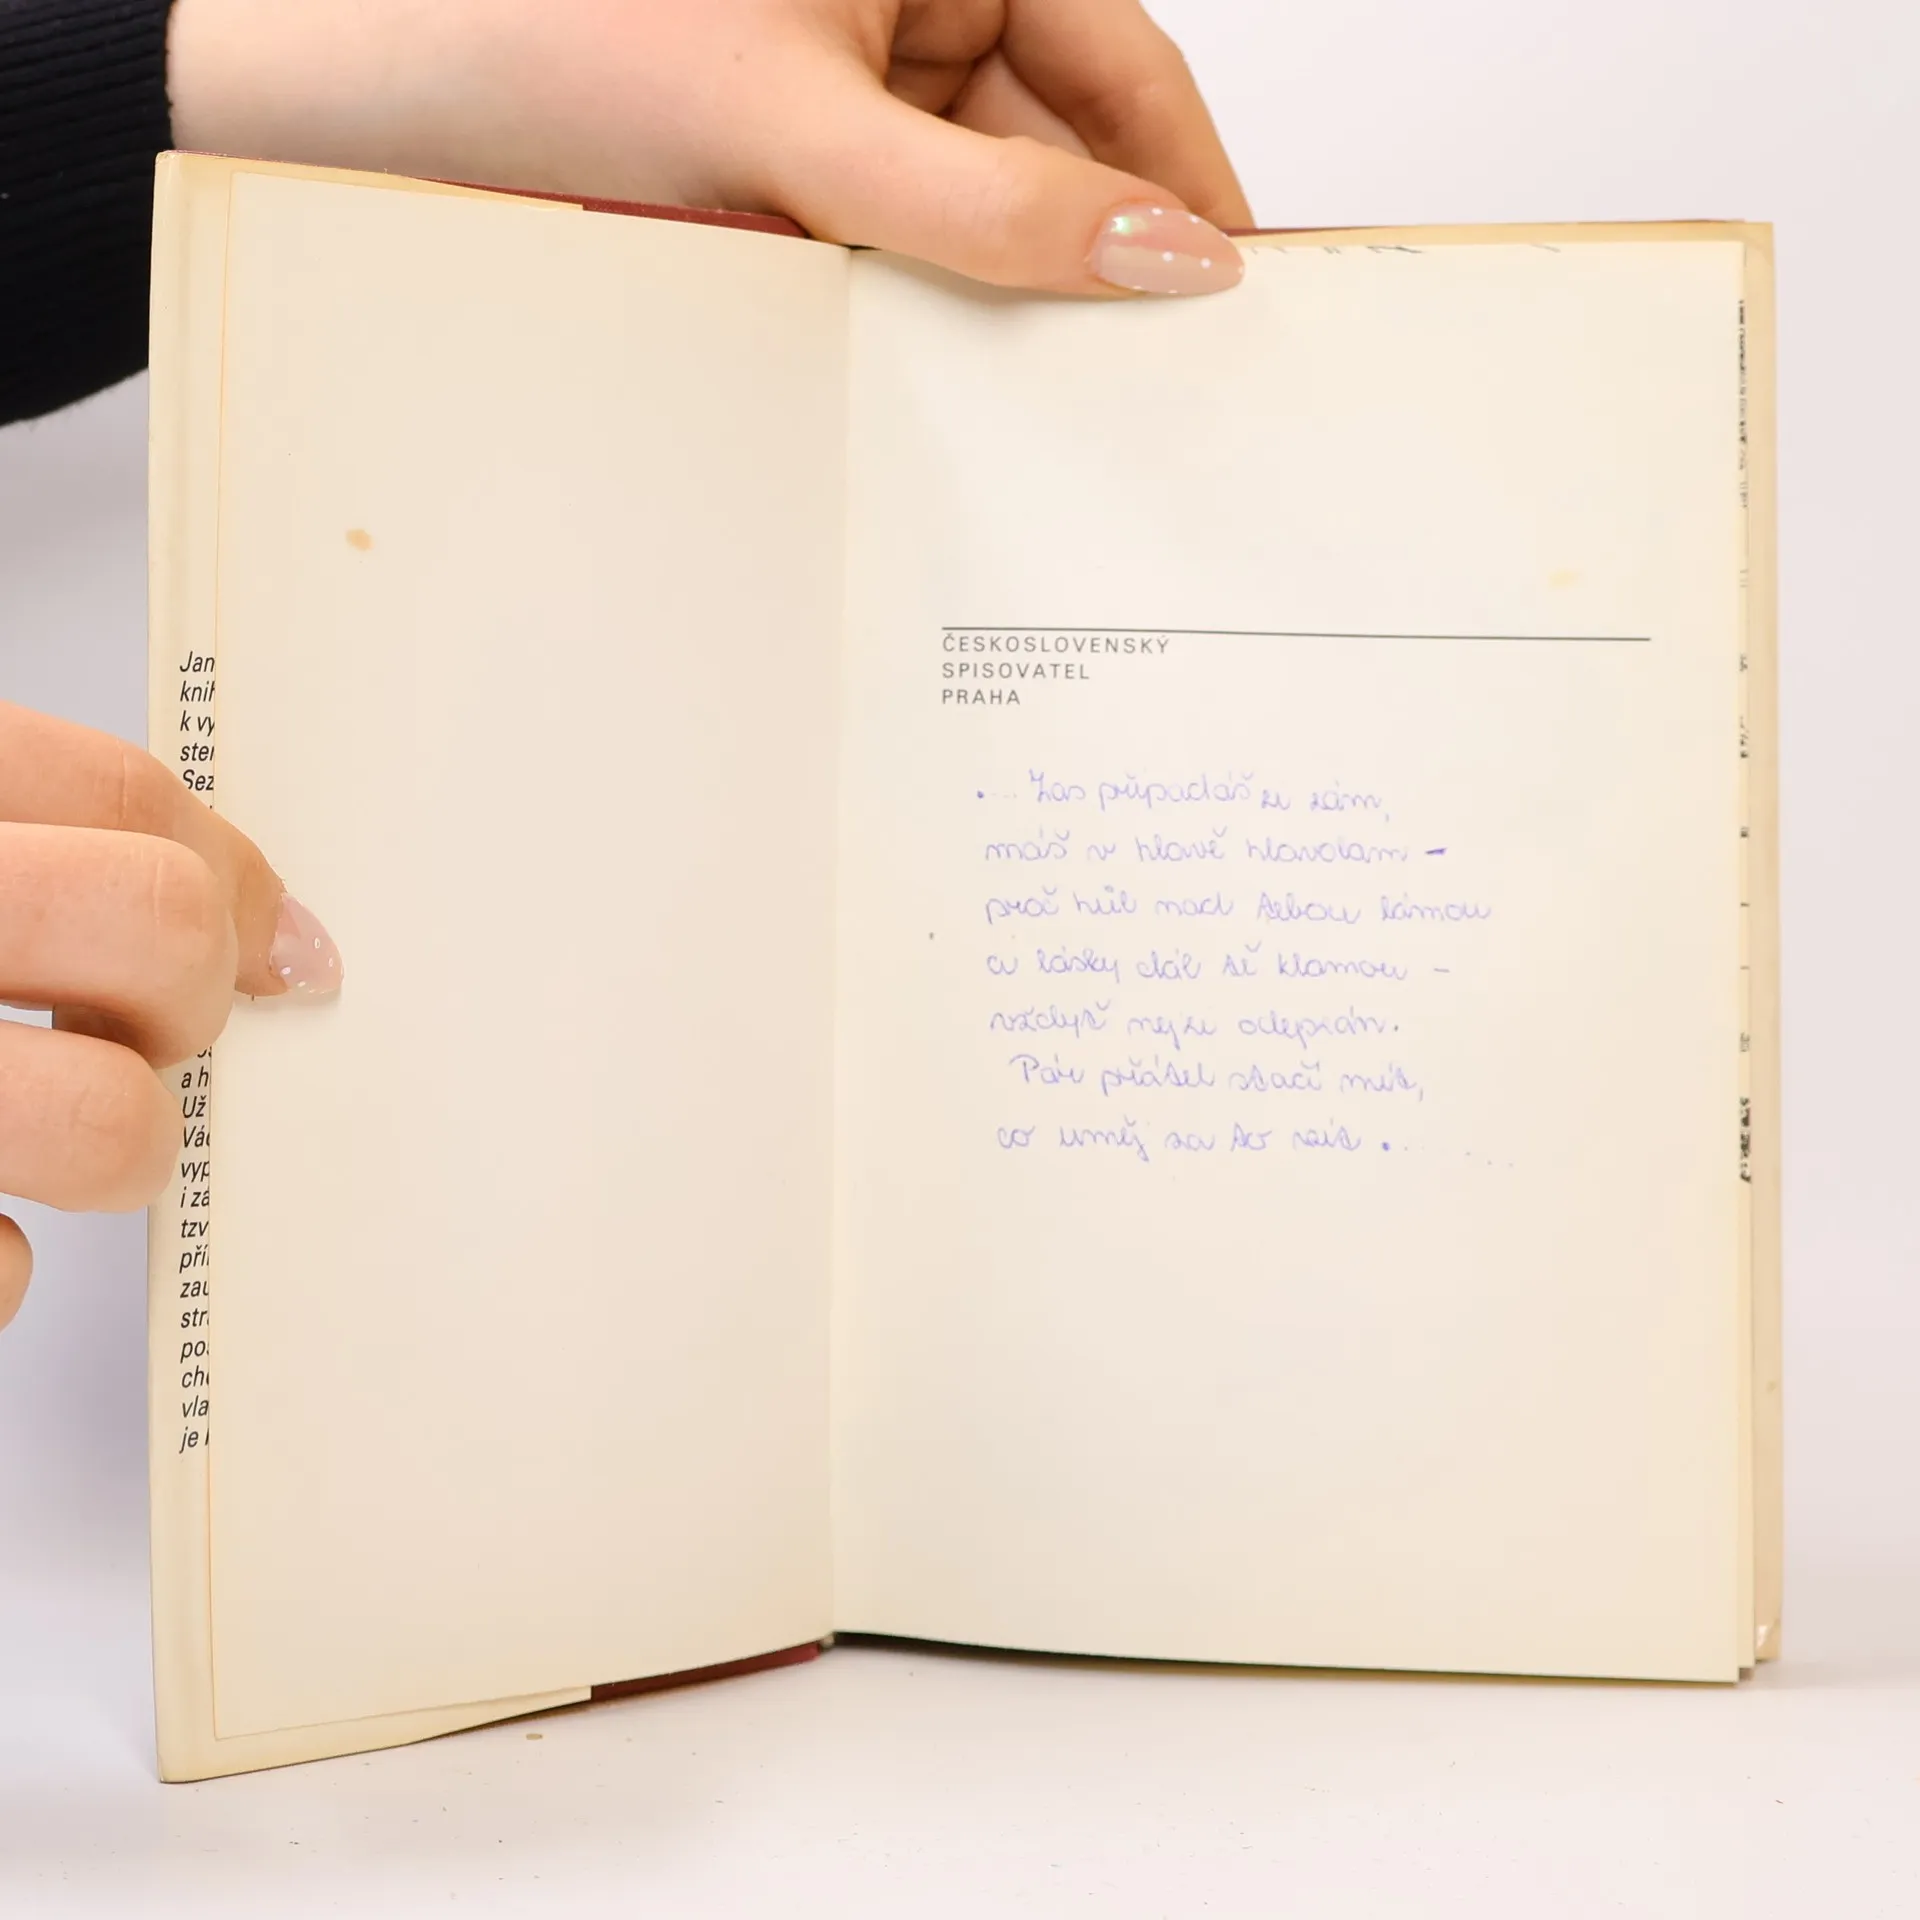 Jan
knih
k vy
ster
Sez
a h
Už
Vác
vyp
i zá
tzv
pří
zau
str
pos
cho
vla
je
ČESKOSLOVENSKÝ
SPISOVATEL
PRAHA
.... Zas připadáš si sám,
máš v hlavě hlavolam –
proč hůl nad tebou lámou
a lásky dál tě klamou –
vždyť nejsi odepsán.
Pár přátel stačí mít,
co uměj za to vzít .......